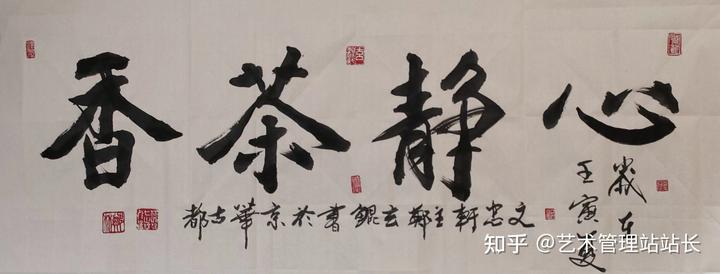 心静茶香
岁在
壬寅夏
文忠轩主郑玄鲲书于京华古都
知乎 @艺术管理站站长